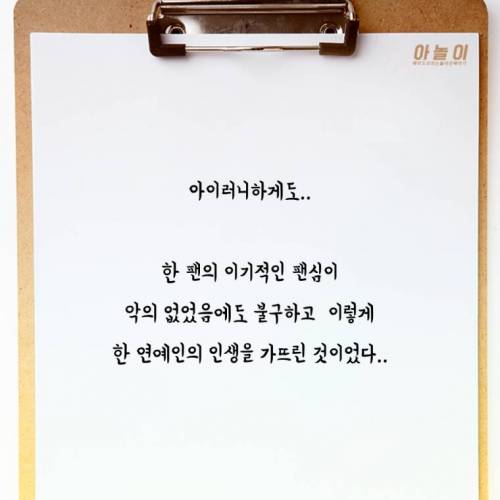 아놀이
아이러니하게도..
한 팬의 이기적인 팬심이
악의 없었음에도 불구하고 이렇게
한 연예인의 인생을 가뜨린 것이었다..